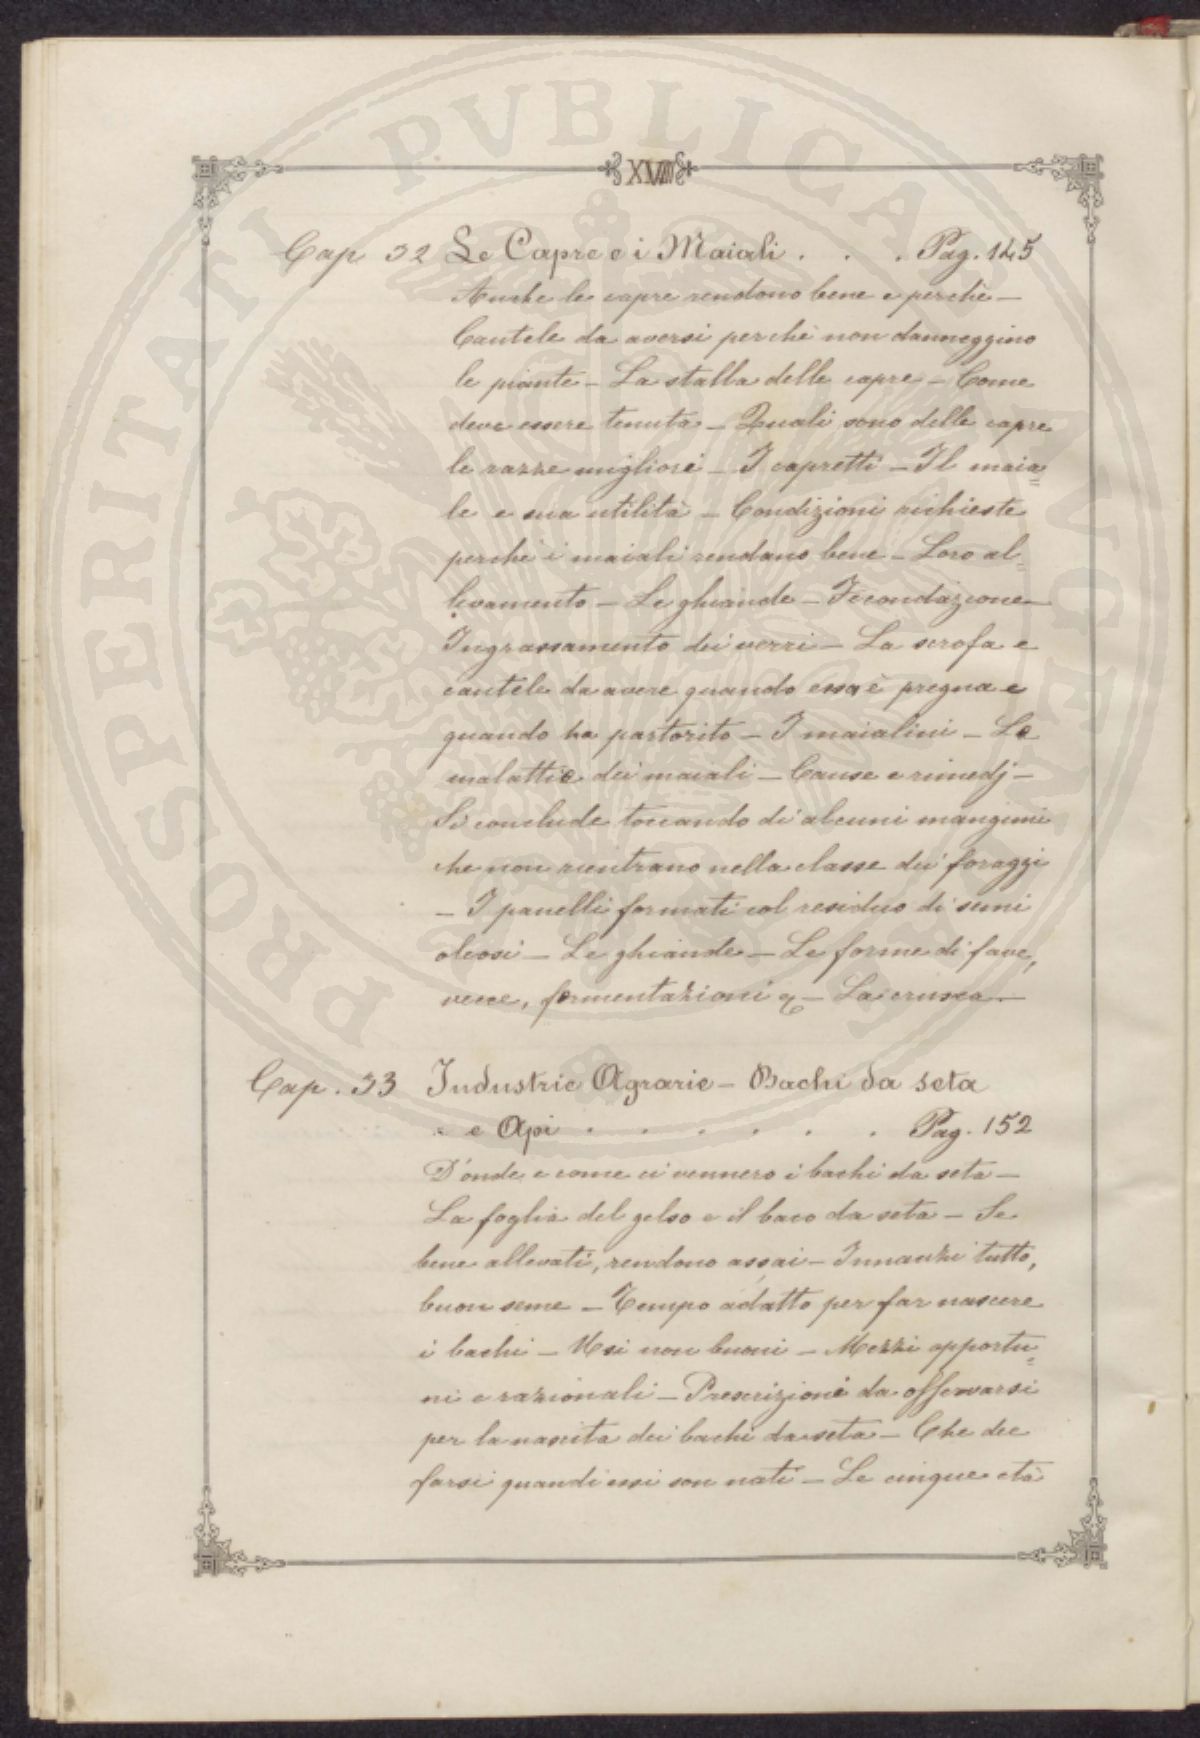 XVIII
Cap. 32 Le Capre e i Maiali . . . Pag. 145
Anche le capre rendono bene e perchè —
Cautele da aversi perchè non danneggino
le piante — La stalla delle capre — Come
deve essere tenuta — Quali sono delle capre
le razze migliori — I capretti — Il maia=
le e sua utilità — Condizioni richieste
perchè i maiali rendano bene — Loro al=
levamento — Le ghiande — Fecondazione —
Ingrassamento dei verri — La scrofa e
cautele da avere quando essa è pregna e
quando ha partorito — I maialini — Le
malattie dei maiali — Cause e rimedj —
Si conclude toccando di alcuni mangimi
che non rientrano nella classe dei foraggi
— I panelli formati col residuo di semi
oleosi — Le ghiande — Le forme di fave,
vecce, fermentazioni — La crusca —
Cap. 33 Industrie Agrarie — Bachi da seta
e Api . . . . . . Pag. 152
D'onde e come ci vennero i bachi da seta —
La foglia del gelso e il baco da seta — Se
bene allevati, rendono assai — Innanzi tutto,
buon seme — Tempo adatto per far nascere
i bachi — Usi non buoni — Mezzi opportu=
ni e razionali — Prescrizioni da osservarsi
per la nascita dei bachi da seta — Che dee
farsi quandi essi son nati — Le cinque età
PROSPERITATI PVBLICAE AVGENDAE